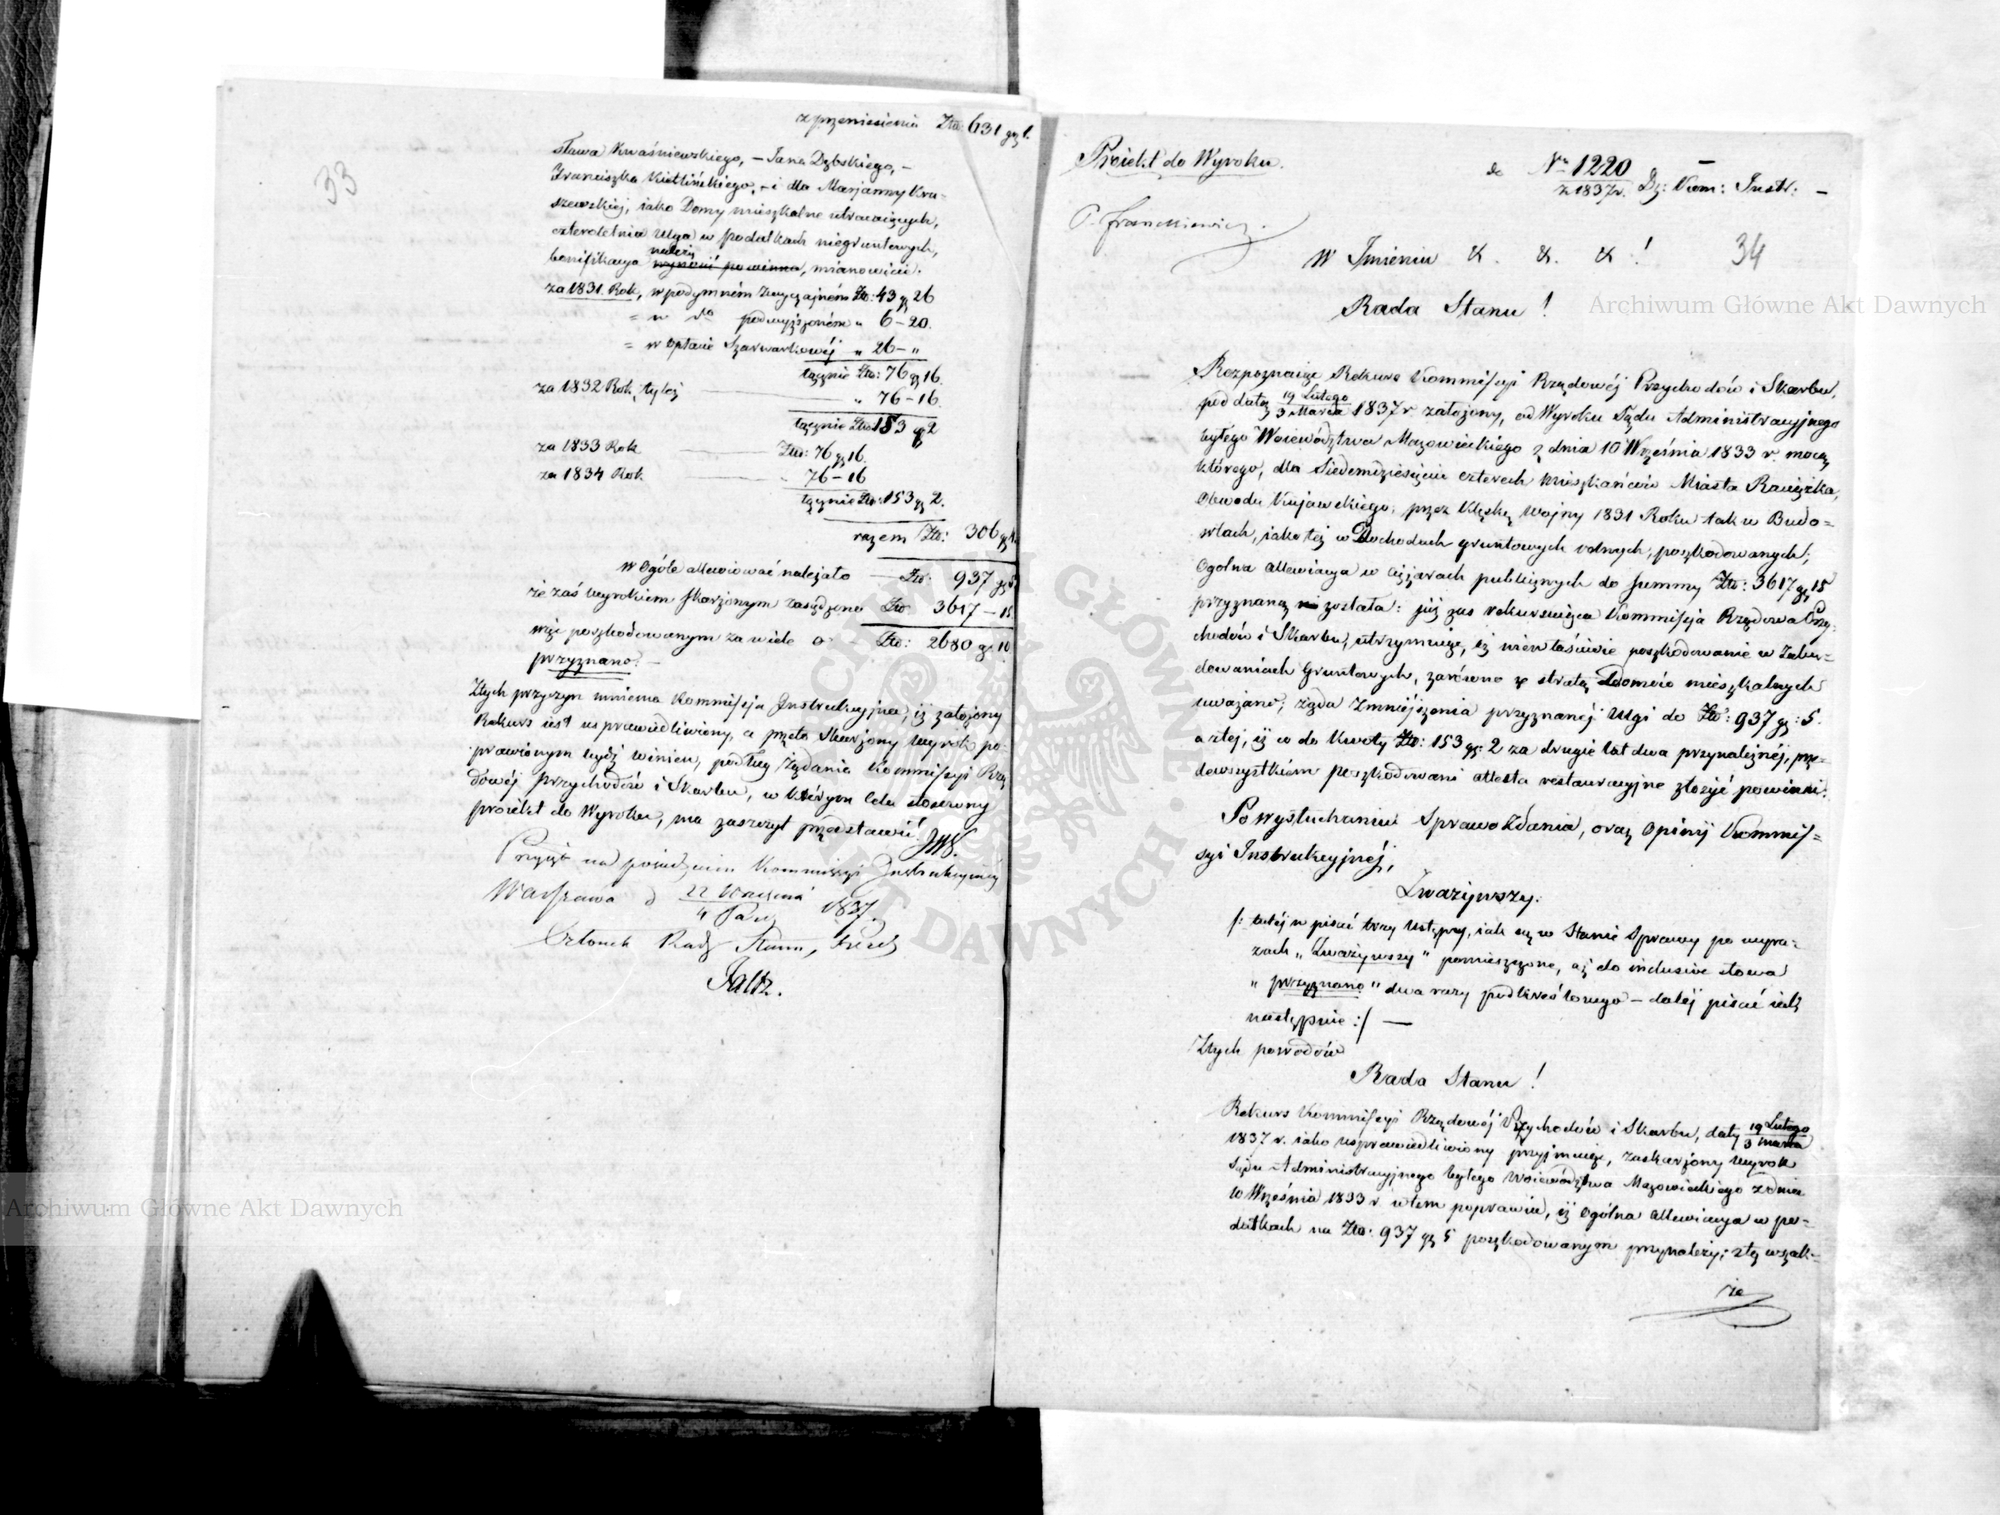 33
z przeniesienia Złt: 631 gr 1.
sława Kwaśniewskiego, – Jana Dębskiego, –
Franciszka Kietlińskiego, – i dla Marjanny Kra-
szewskiej, iako Domy mieszkalne utracaiących,
czteroletnia Ulga w podatkach niegruntowych,
należy
bonifikacya wynosić powinna, mianowicie.
za 1831. Rok, w podymném zwyczajném Złt: 43 gr 26
" w do podwyższoném " 6 – 20.
" w opłacie Szarwarkowéj " 26 – "
łącznie Złt: 76 gr 16.
za 1832 Rok, tyleż " 76 – 16.
łącznie Złt 153 gr 2
za 1833 Rok Złt: 76 gr 16.
za 1834 Rok " 76 – 16
łącznie Złt: 153 gr 2.
razem Złt: 306 gr
w ogóle allewiować należało Złt: 937 gr 5
że zaś Wyrokiem skarżonym zasądzono Złt 3617 – 15
więc poszkodowanym za wiele o Złt: 2680 gr 10
przyznano. –
Z tych przyczyn mniema Kommissja Instrukcyjna, iż założony
Rekurs iest usprawiedliwiony, a przeto Skarżony Wyrok po-
prawionym bydź winien, podług żądania Kommissyi Rzą
dowéj Przychodów i Skarbu, w którym celu stosowny
proiekt do Wyroku, ma zaszczyt przedstawić
Przyjęt na posiedzeniu Kommissyi Instrukcyjnéj
Warszawa d 22 Września 1837
4 Paź
Członek Rady Stanu, Prezes
Faltz.
Proiekt do Wyroku.
do Nr 1220
z 1837 r. Dz: Kom: Instr: –
P. Franckiewicz.
34
W Imieniu &. &. & !
Rada Stanu !
Rozpoznaiąc Rekurs Kommissyi Rządowéj Przychodów i Skarbu,
pod datą 19 Lutego
3 Marca 1837 r założony, od Wyroku Sądu Administracyjnego
byłego Woiewództwa Mazowieckiego z dnia 10 Września 1833 r. mocą
którego, dla Siedemdziesięciu czterech mieszkańców Miasta Raciążka,
Obwodu Kujawskiego, przez klęskę wojny 1831 Roku tak w Budo-
wlach, iako też w Dochodach gruntowych rolnych, poszkodowanych;
Ogólna allewiacya w ciężarach publicznych do summy Złt: 3617 gr 15
przyznaną została: już zas rekursuiąca Kommissja Rządowa Przy-
chodów i Skarbu, utrzymuiąc, iż niewłaściwie poszkodowanie w Zabu-
dowaniach gruntowych, zarówno z stratą Domów mieszkalnych
uważano; żąda Zmniejszenia przyznanéj Ulgi do Złt: 937 gr: 5.
a z téj, iż co do kwoty Złt: 153 gr: 2 za drugie lat dwa przynależnéj, prze-
dewszystkiém poszkodowani attesta restauracyjne złożyć powinni.
Po wysłuchaniu Sprawozdania, oraz Opinij Kommis-
syi Instrukcyjnéj,
Zważywszy.
/: tutéj wpisać trzy ustępy, iak są w Stanie Sprawy po wyra-
zach „ Zważywszy " pomieszczone, aż do inclusive słowa
„ przyznano " dwa razy podkreślonego – daléj pisać iak
następnie :/ —
Z tych powodów
Rada Stanu !
Rekurs Kommissyi Rządowéj Przychodów i Skarbu, daty 19 Lutego
3 Marca
1837 r. iako usprawiedliwiony przyjmuiąc, zaskarżony Wyrok
Sądu Administracyjnego byłego Woiewództwa Mazowieckiego z dnia
10 Września 1833 r w tem poprawia, iż ogólna allewiacya w po-
datkach na Złt: 937 gr 5 poszkodowanym przynależy; z téj wszak-
że
Archiwum Główne Akt Dawnych
Archiwum Główne Akt Dawnych
ARCHIWUM GŁÓWNE AKT DAWNYCH